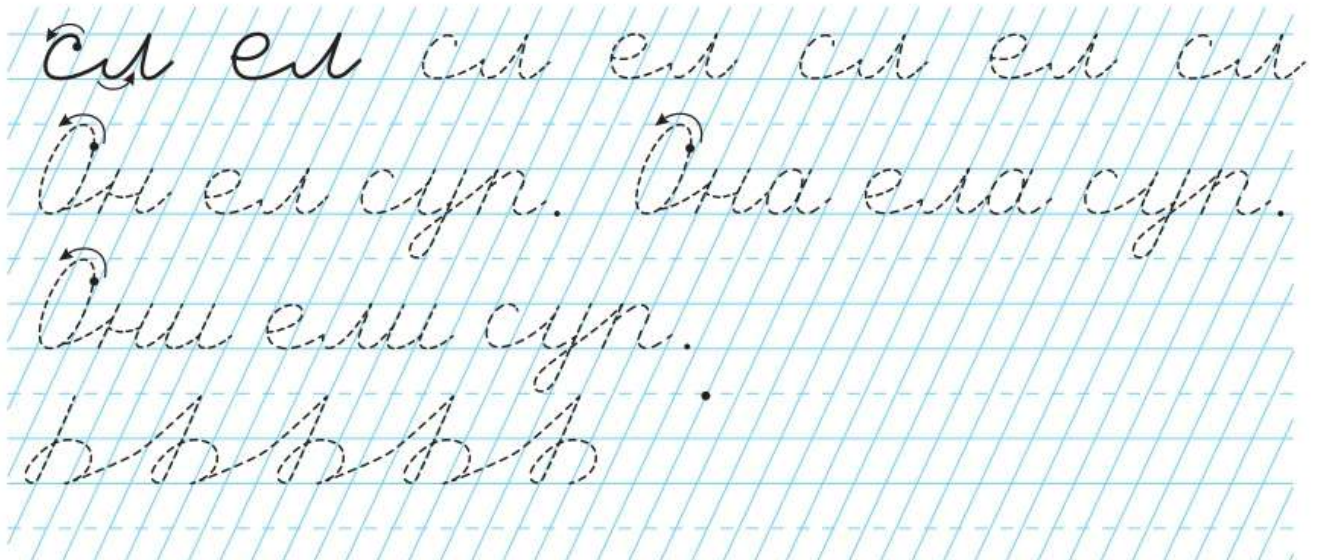 сл ел сл ел сл ел сл
Он ел суп. Она ела суп.
Они ели суп.